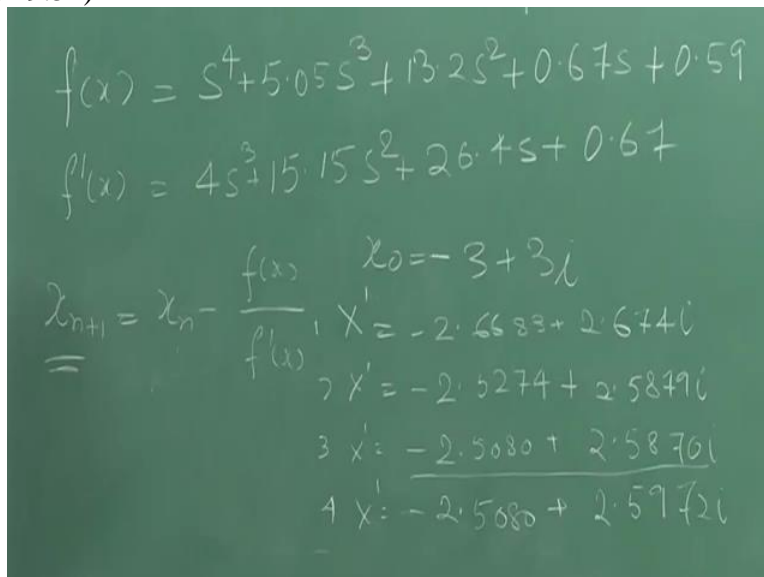 f(x) = S⁴+5.05S³+13.2S²+0.67S+0.59
f'(x) = 4S³+15.15S²+26.4S+0.67
x₀=-3+3i
xₙ₊₁ = xₙ - f(x)/f'(x)
1 X' = -2.6683+2.674i
2 X' = -2.5274+2.5879i
3 X' = -2.5080+2.5870i
4 X' = -2.5080+2.5972i